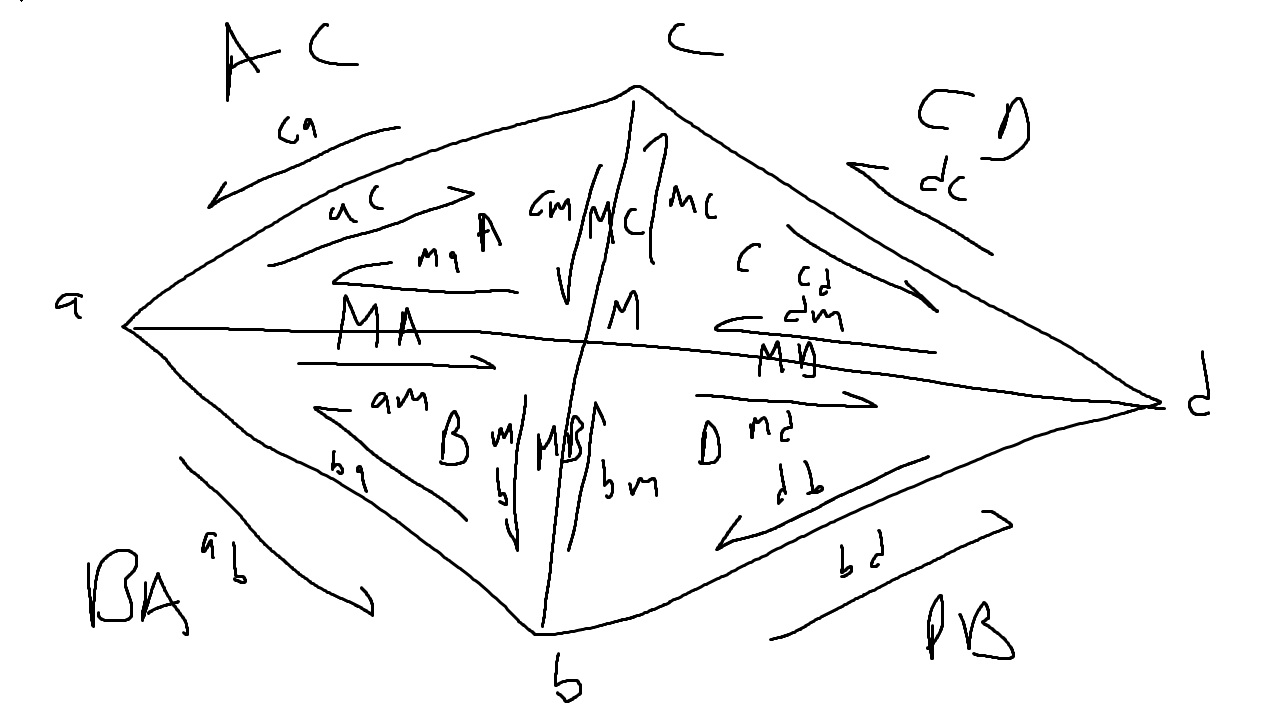 A C
C
C D
ca
dc
a C
cm
M C
M C
A
ma
C
cd
a
M A
M
dm
M D
d
am
B
m
b
M B
b m
D
md
ba
d b
a b
b d
BA
DB
b